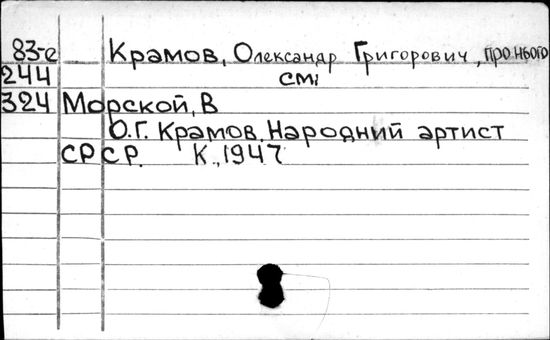 83-е Крамов, Олександр Григорович, про нього
244 см:
324 Морской, В
О.Г. Крамов. Народний артист
СРСР. К., 1947